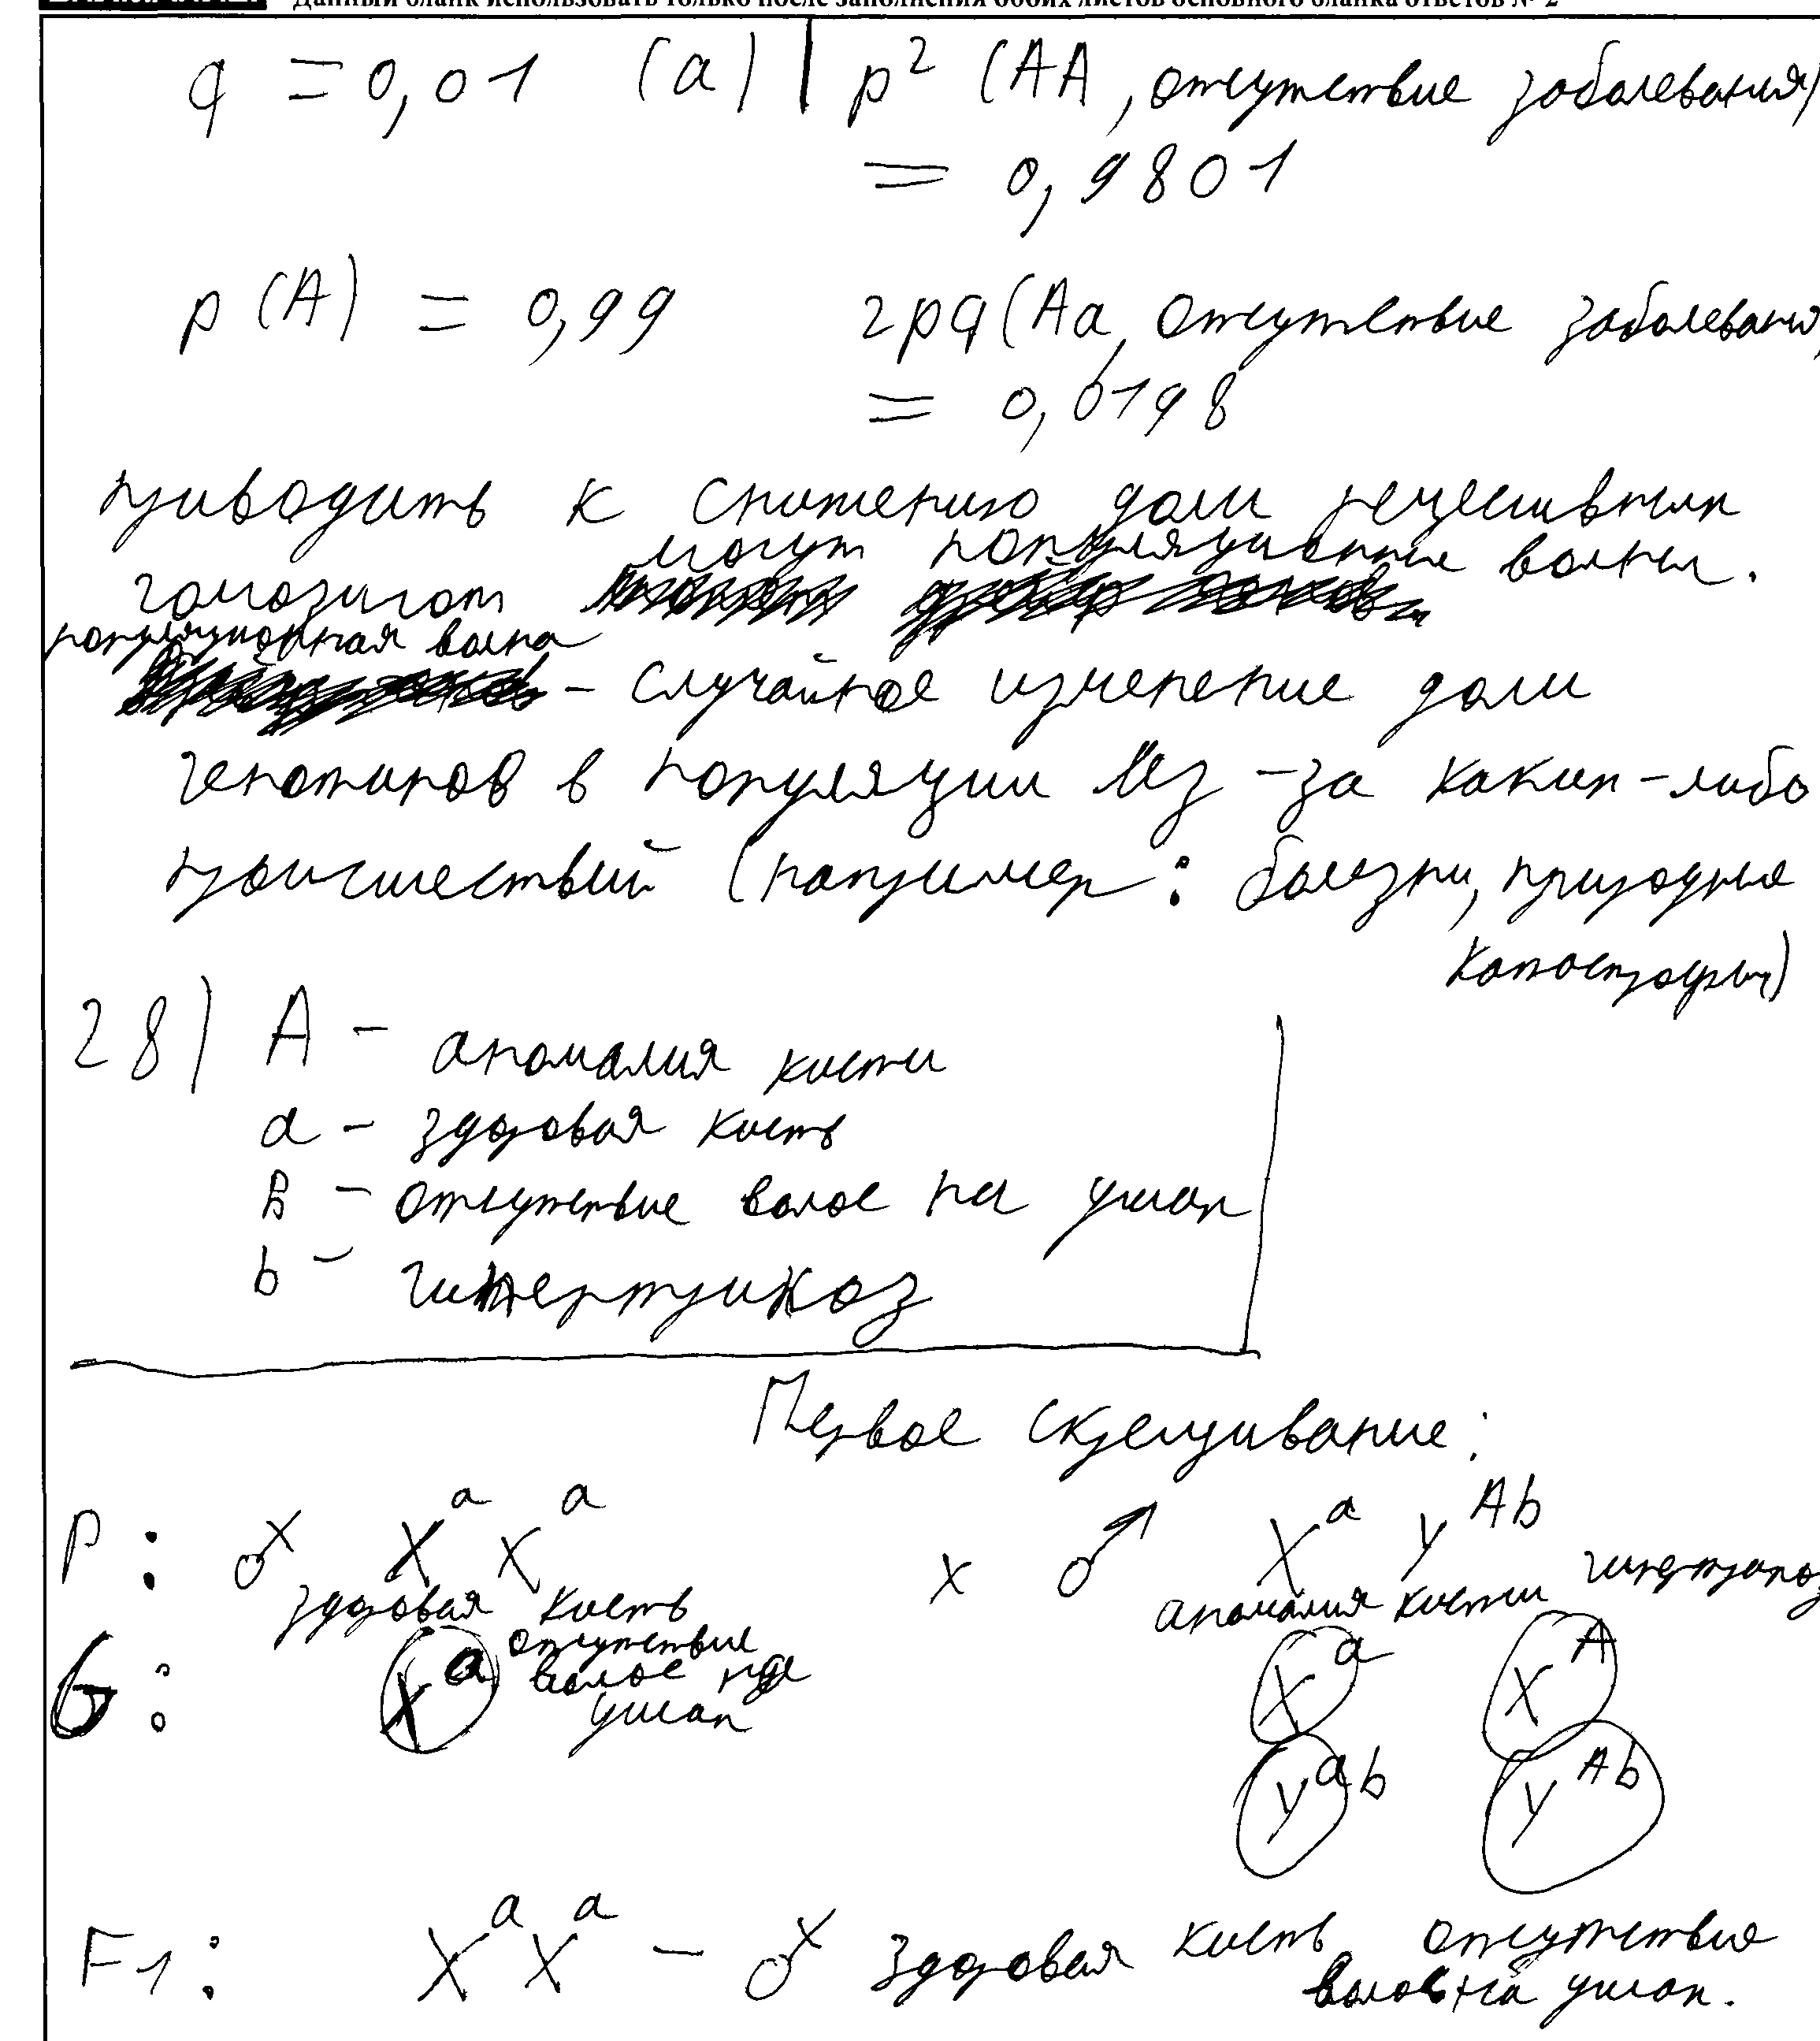 Данный бланк использовать только после заполнения обоих листов основного бланка ответов № 2
q = 0,01 (a) | p² (AA, отсутствие заболевания)
= 0,9801
p (A) = 0,99 2pq (Aa, отсутствие заболевания,
= 0,0198
приводить к снижению доли рецессивных
могут популяционные волны.
гомозигот
популяционная волна
- случайное изменение доли
генотипов в популяции из-за каких-либо
происшествий (например: болезни, природные
катастрофы)
28) A - аномалия кисти
a - здоровая кисть
B - отсутствие волос на ушах
b - гипертрихоз
Первое скрещивание:
P: ♀ XᵃXᵃ x ♂ Xᵃ Yᴬᵇ
здоровая кисть аномалия кисти
отсутствие
волос на
ушах
G: Xᵃ Xᵃ Xᴬ
Yᵃᵇ Yᴬᵇ
F1: XᵃXᵃ - ♀ здоровая кисть, отсутствие
волос на ушах.